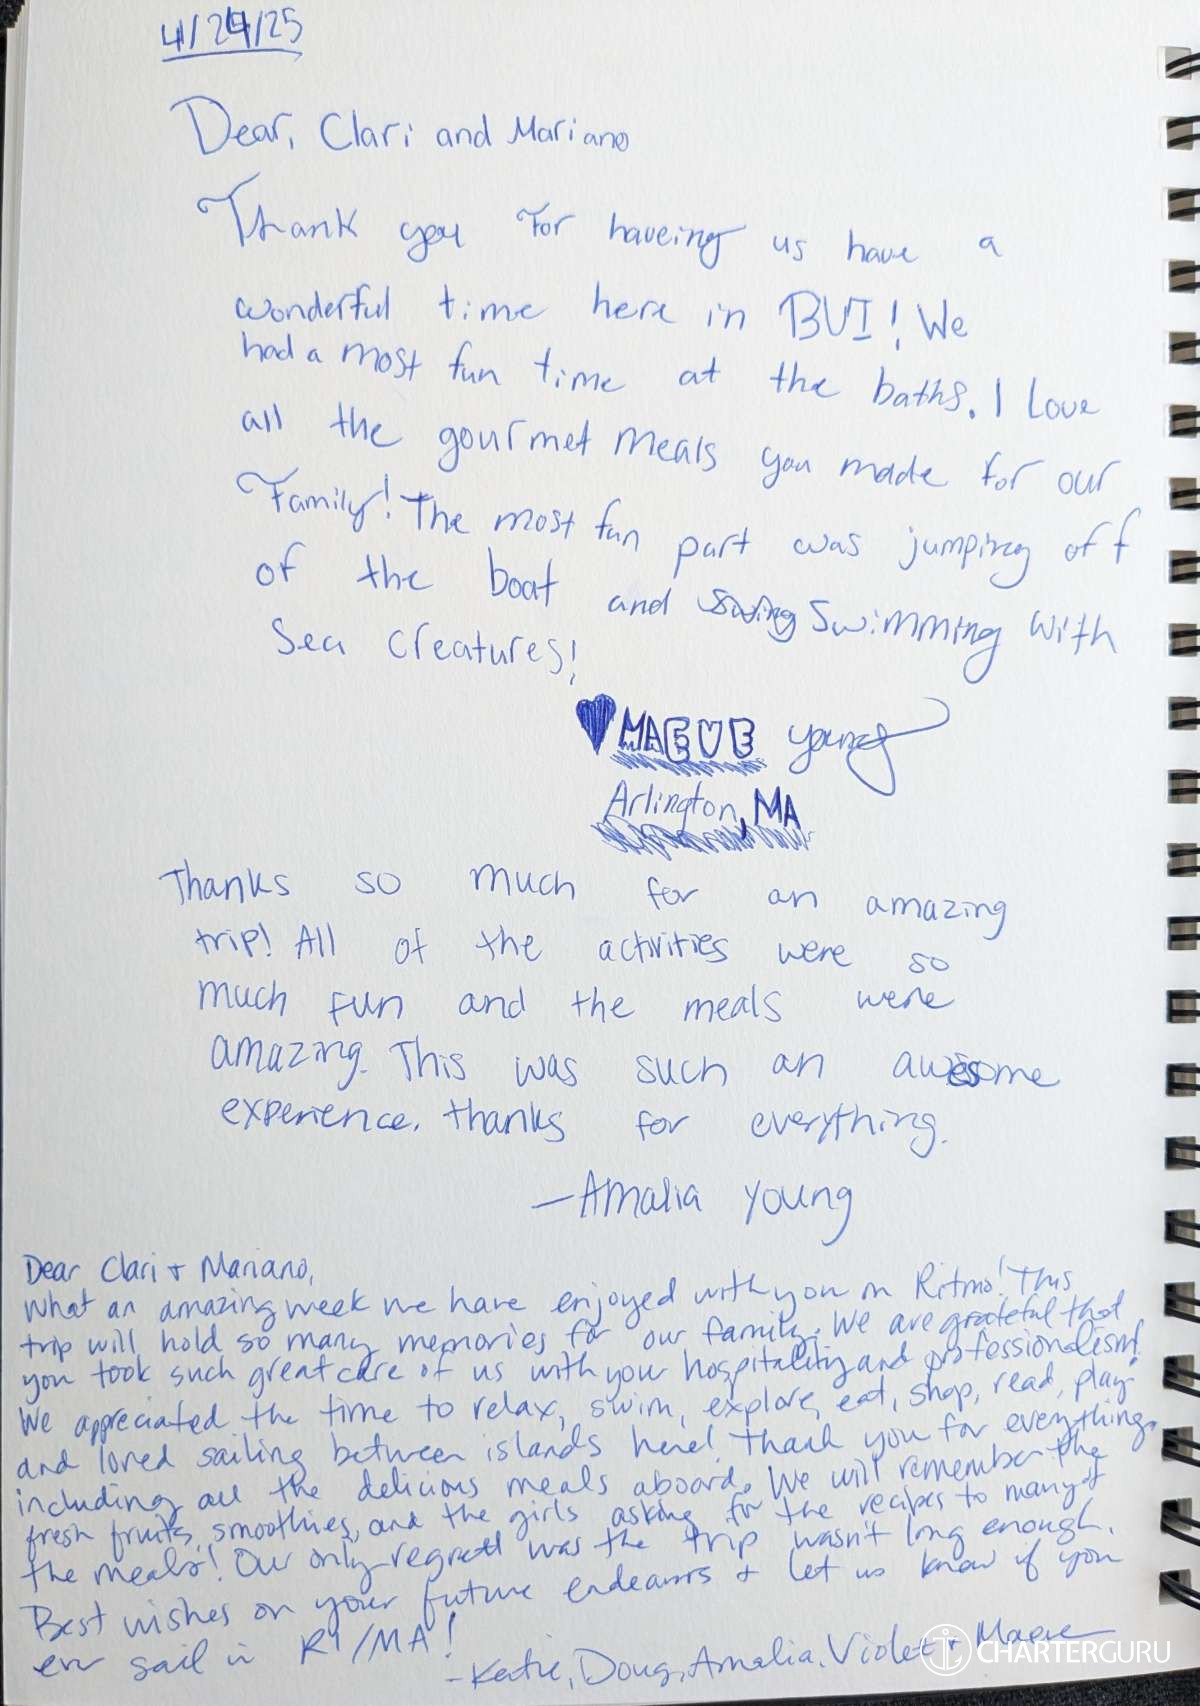 4/24/25
Dear, Clari and Mariano
Thank you for haveing us have a
wonderful time here in BVI! We
had a most fun time at the baths. I Love
all the gourmet meals you made for our
Family! The most fun part was jumping off
of the boat and swimming with
Sea creatures!
MAEVE young
Arlington, MA
Thanks so much for an amazing
trip! All of the activities were so
much fun and the meals were
amazing. This was such an awesome
experience. Thanks for everything.
—Amalia Young
Dear Clari + Mariano,
What an amazing week we have enjoyed with you on Ritmo! This
trip will hold so many memories for our family. We are grateful that
you took such great care of us with your hospitality and professionalism!
We appreciated the time to relax, swim, explore, eat, shop, read, play
and loved sailing between islands here! Thank you for everything,
including all the delicious meals aboard. We will remember the
fresh fruits, smoothies, and the girls asking for the recipes to many of
the meals! Our only regret was the trip wasn't long enough.
Best wishes on your future endeavors + let us know if you
ever sail in RI/MA!
-Katie, Doug, Amalia, Violet + Maeve
CHARTERGURU